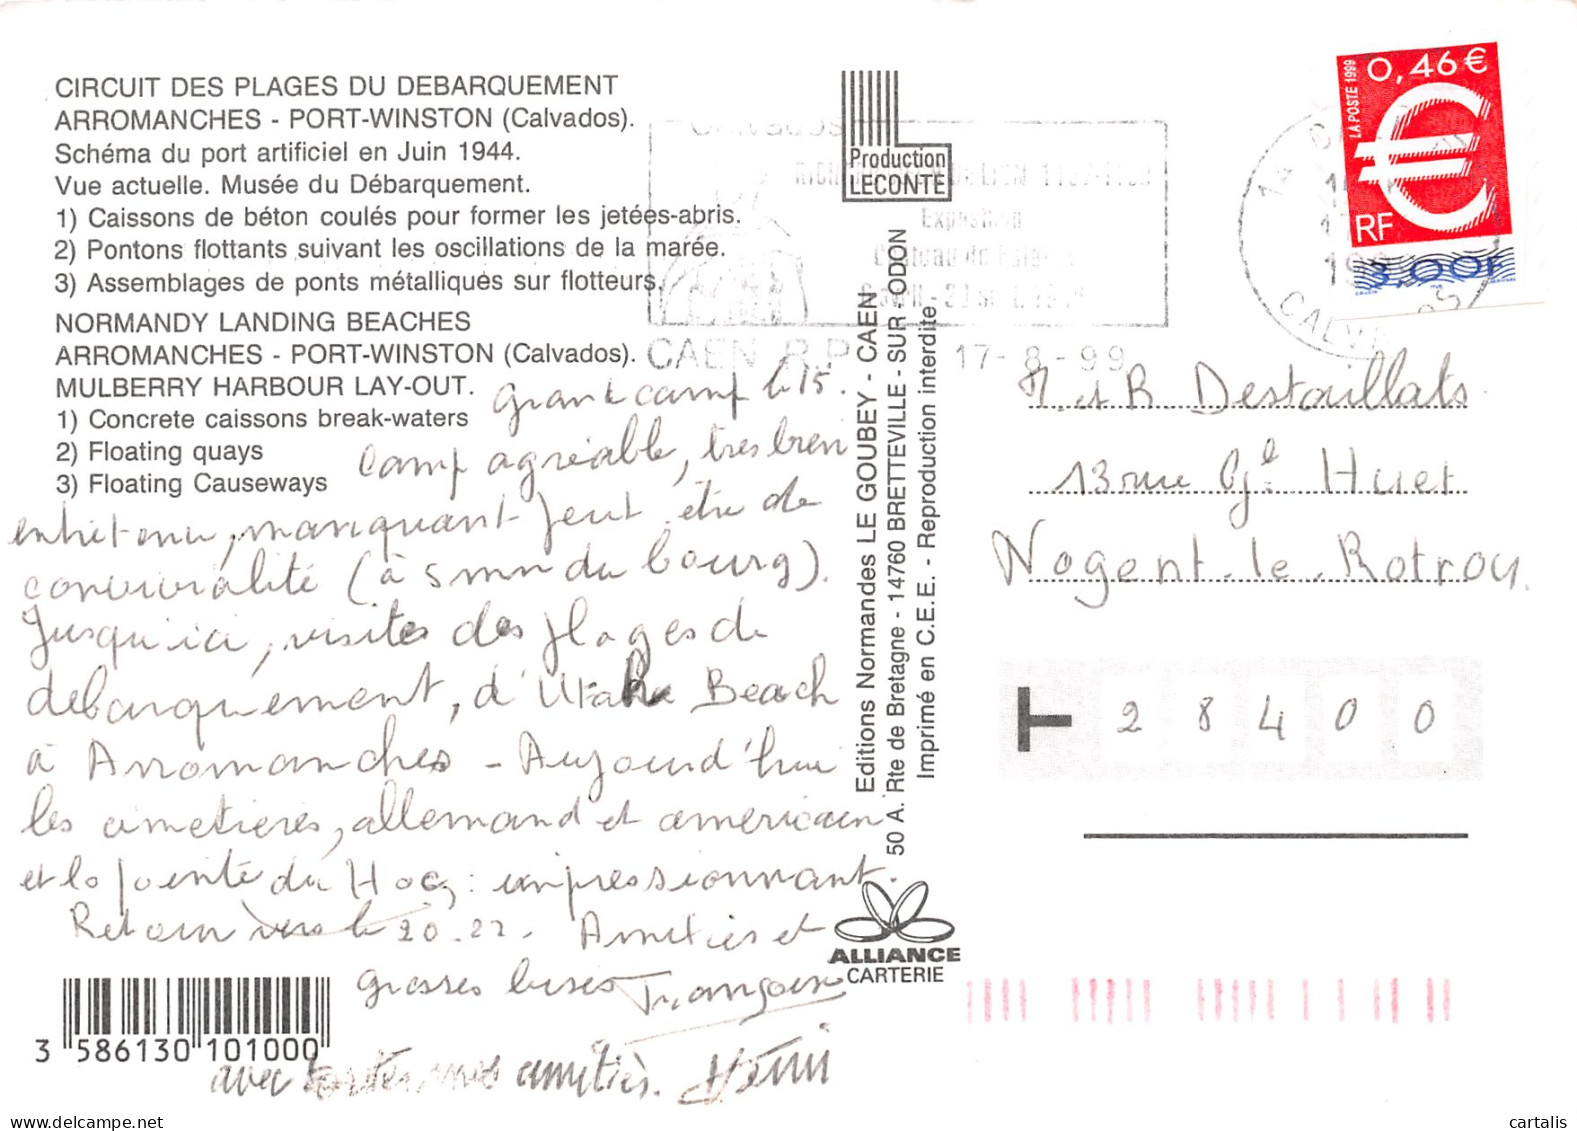 CIRCUIT DES PLAGES DU DEBARQUEMENT
ARROMANCHES - PORT-WINSTON (Calvados).
Schéma du port artificiel en Juin 1944.
Vue actuelle. Musée du Débarquement.
1) Caissons de béton coulés pour former les jetées-abris.
2) Pontons flottants suivant les oscillations de la marée.
3) Assemblages de ponts métalliques sur flotteurs.
NORMANDY LANDING BEACHES
ARROMANCHES - PORT-WINSTON (Calvados).
MULBERRY HARBOUR LAY-OUT.
1) Concrete caissons break-waters
2) Floating quays
3) Floating Causeways
Grandcamp le 15.
Camp agréable, très bien
entretenu, manquant peut être de
convivialité (à 5 mn du bourg).
Jusqu'ici, visites des plages de
debarquement, d'Utah Beach
à Arromanches - Aujourd'hui
les cimetières, allemand et américain
et la pointe du Hoc : impressionnant.
Retour vers le 20-22. Amitiés et
grosses bises Françoise
avec toutes mes amitiés.
3 586130 101000
Production
LECONTE
Editions Normandes LE GOUBEY - CAEN
50 A. Rte de Bretagne - 14760 BRETTEVILLE - SUR - ODON
Imprimé en C.E.E. - Reproduction interdite
ALLIANCE
CARTERIE
Exposition
CAEN R.P. 17-8-99
14 CALVADOS
LA POSTE 1999
0,46 €
RF
3,00F
M. et R Destaillats
13 rue Gl Huet
Nogent-le-Rotrou
28400
cartalis